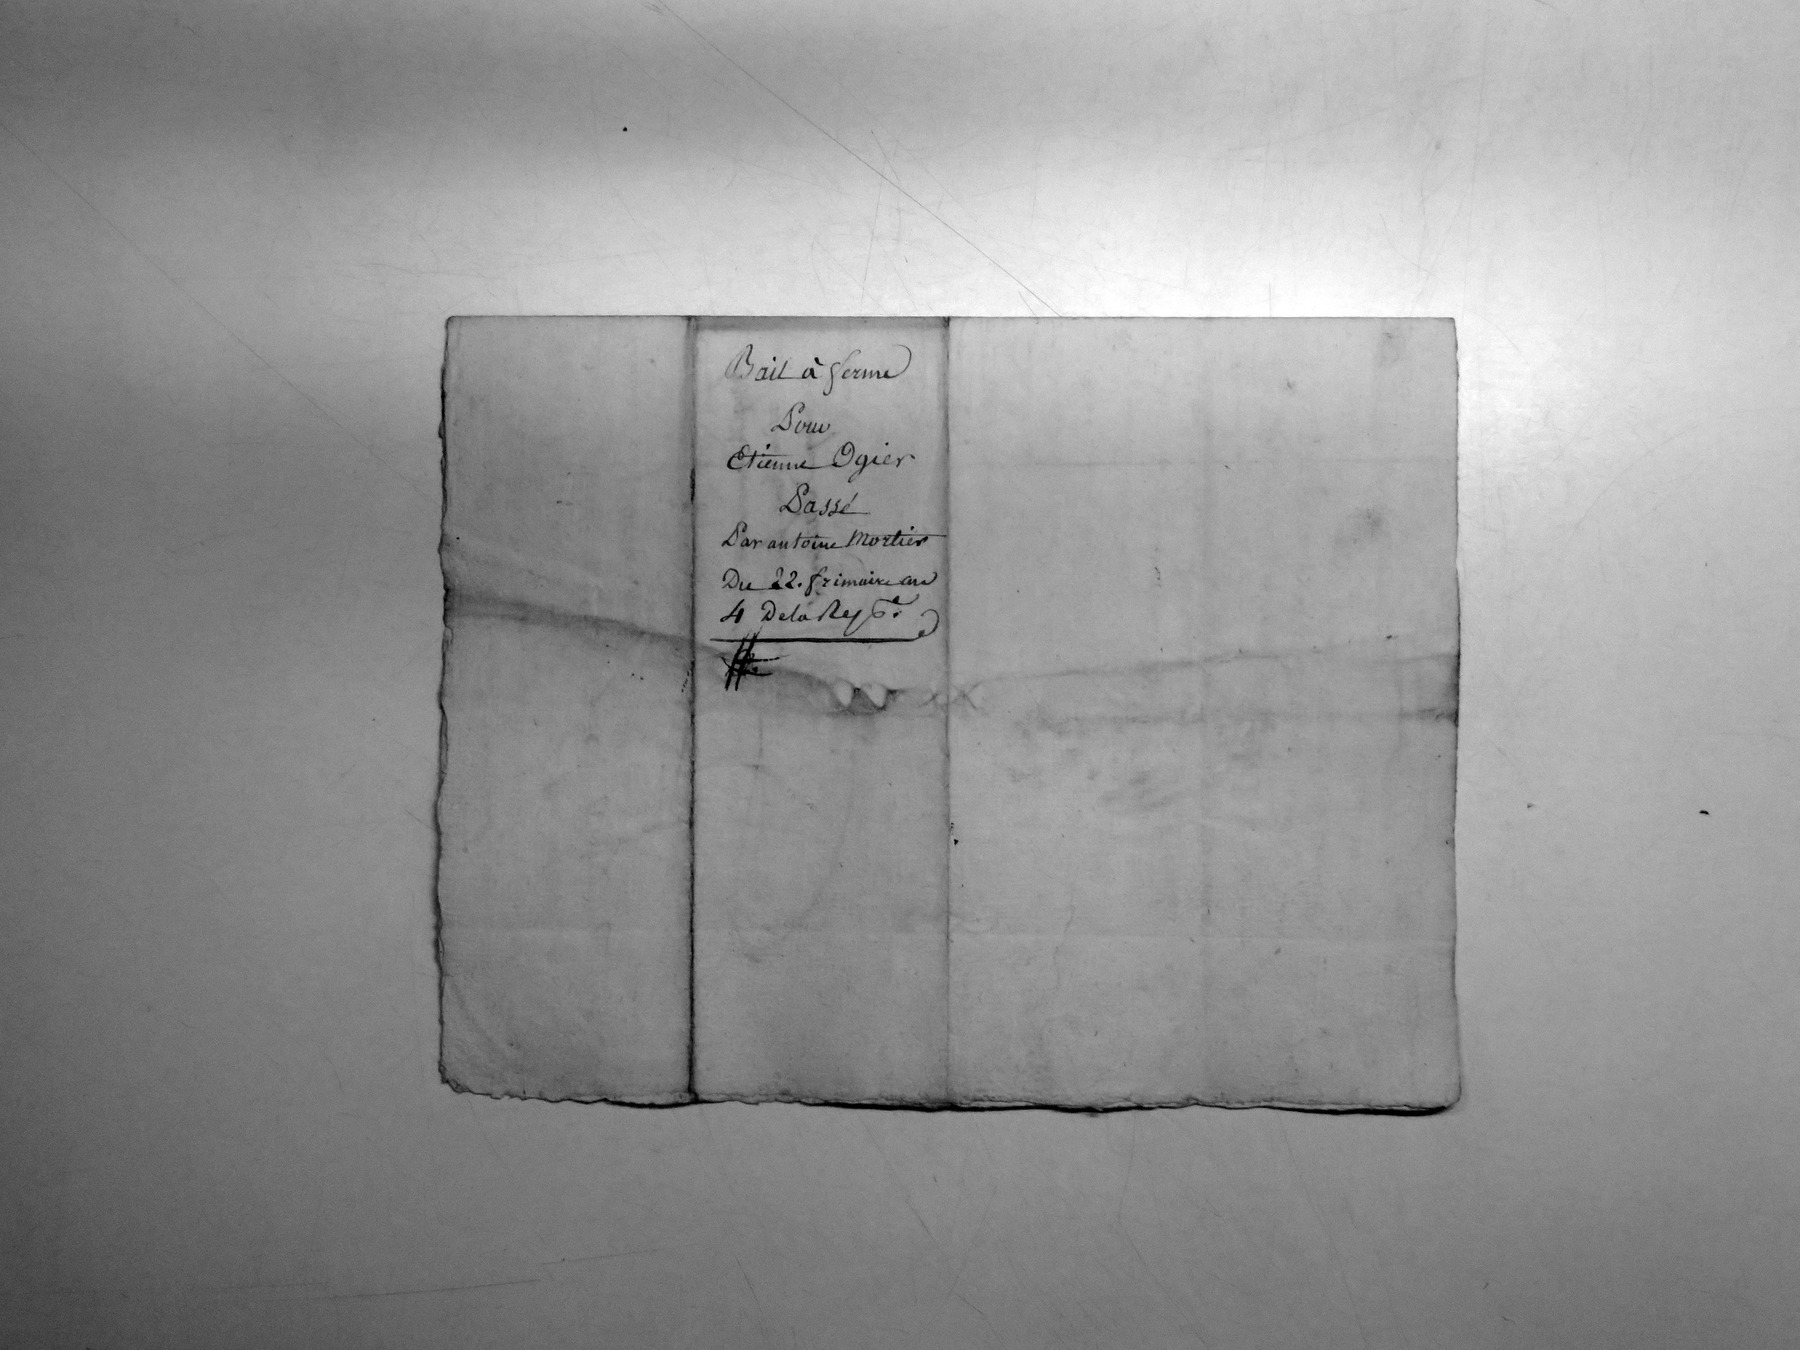 Bail à ferme
Pour
Etienne Ogier
Passé
Par antoine Mortier
Du 22. frimaire an
4 De la Rep.